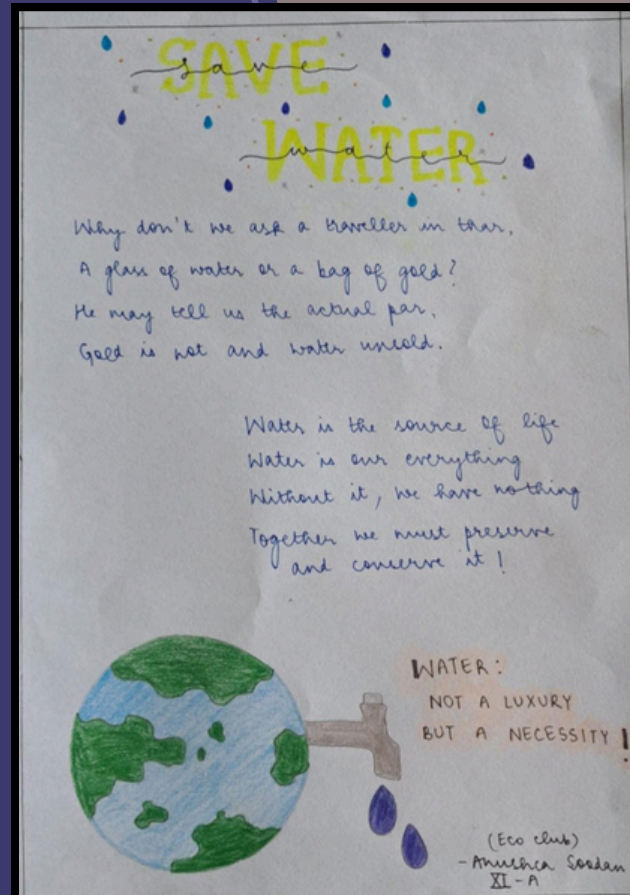 SAVE
save
WATER
water
Why don't we ask a traveller in thar,
A glass of water or a bag of gold?
He may tell us the actual par,
Gold is not and water untold.
Water is the source of life
Water is our everything
Without it, we have nothing
Together we must preserve
and conserve it!
WATER:
NOT A LUXURY
BUT A NECESSITY!
(Eco club)
- Anushca
XI-A